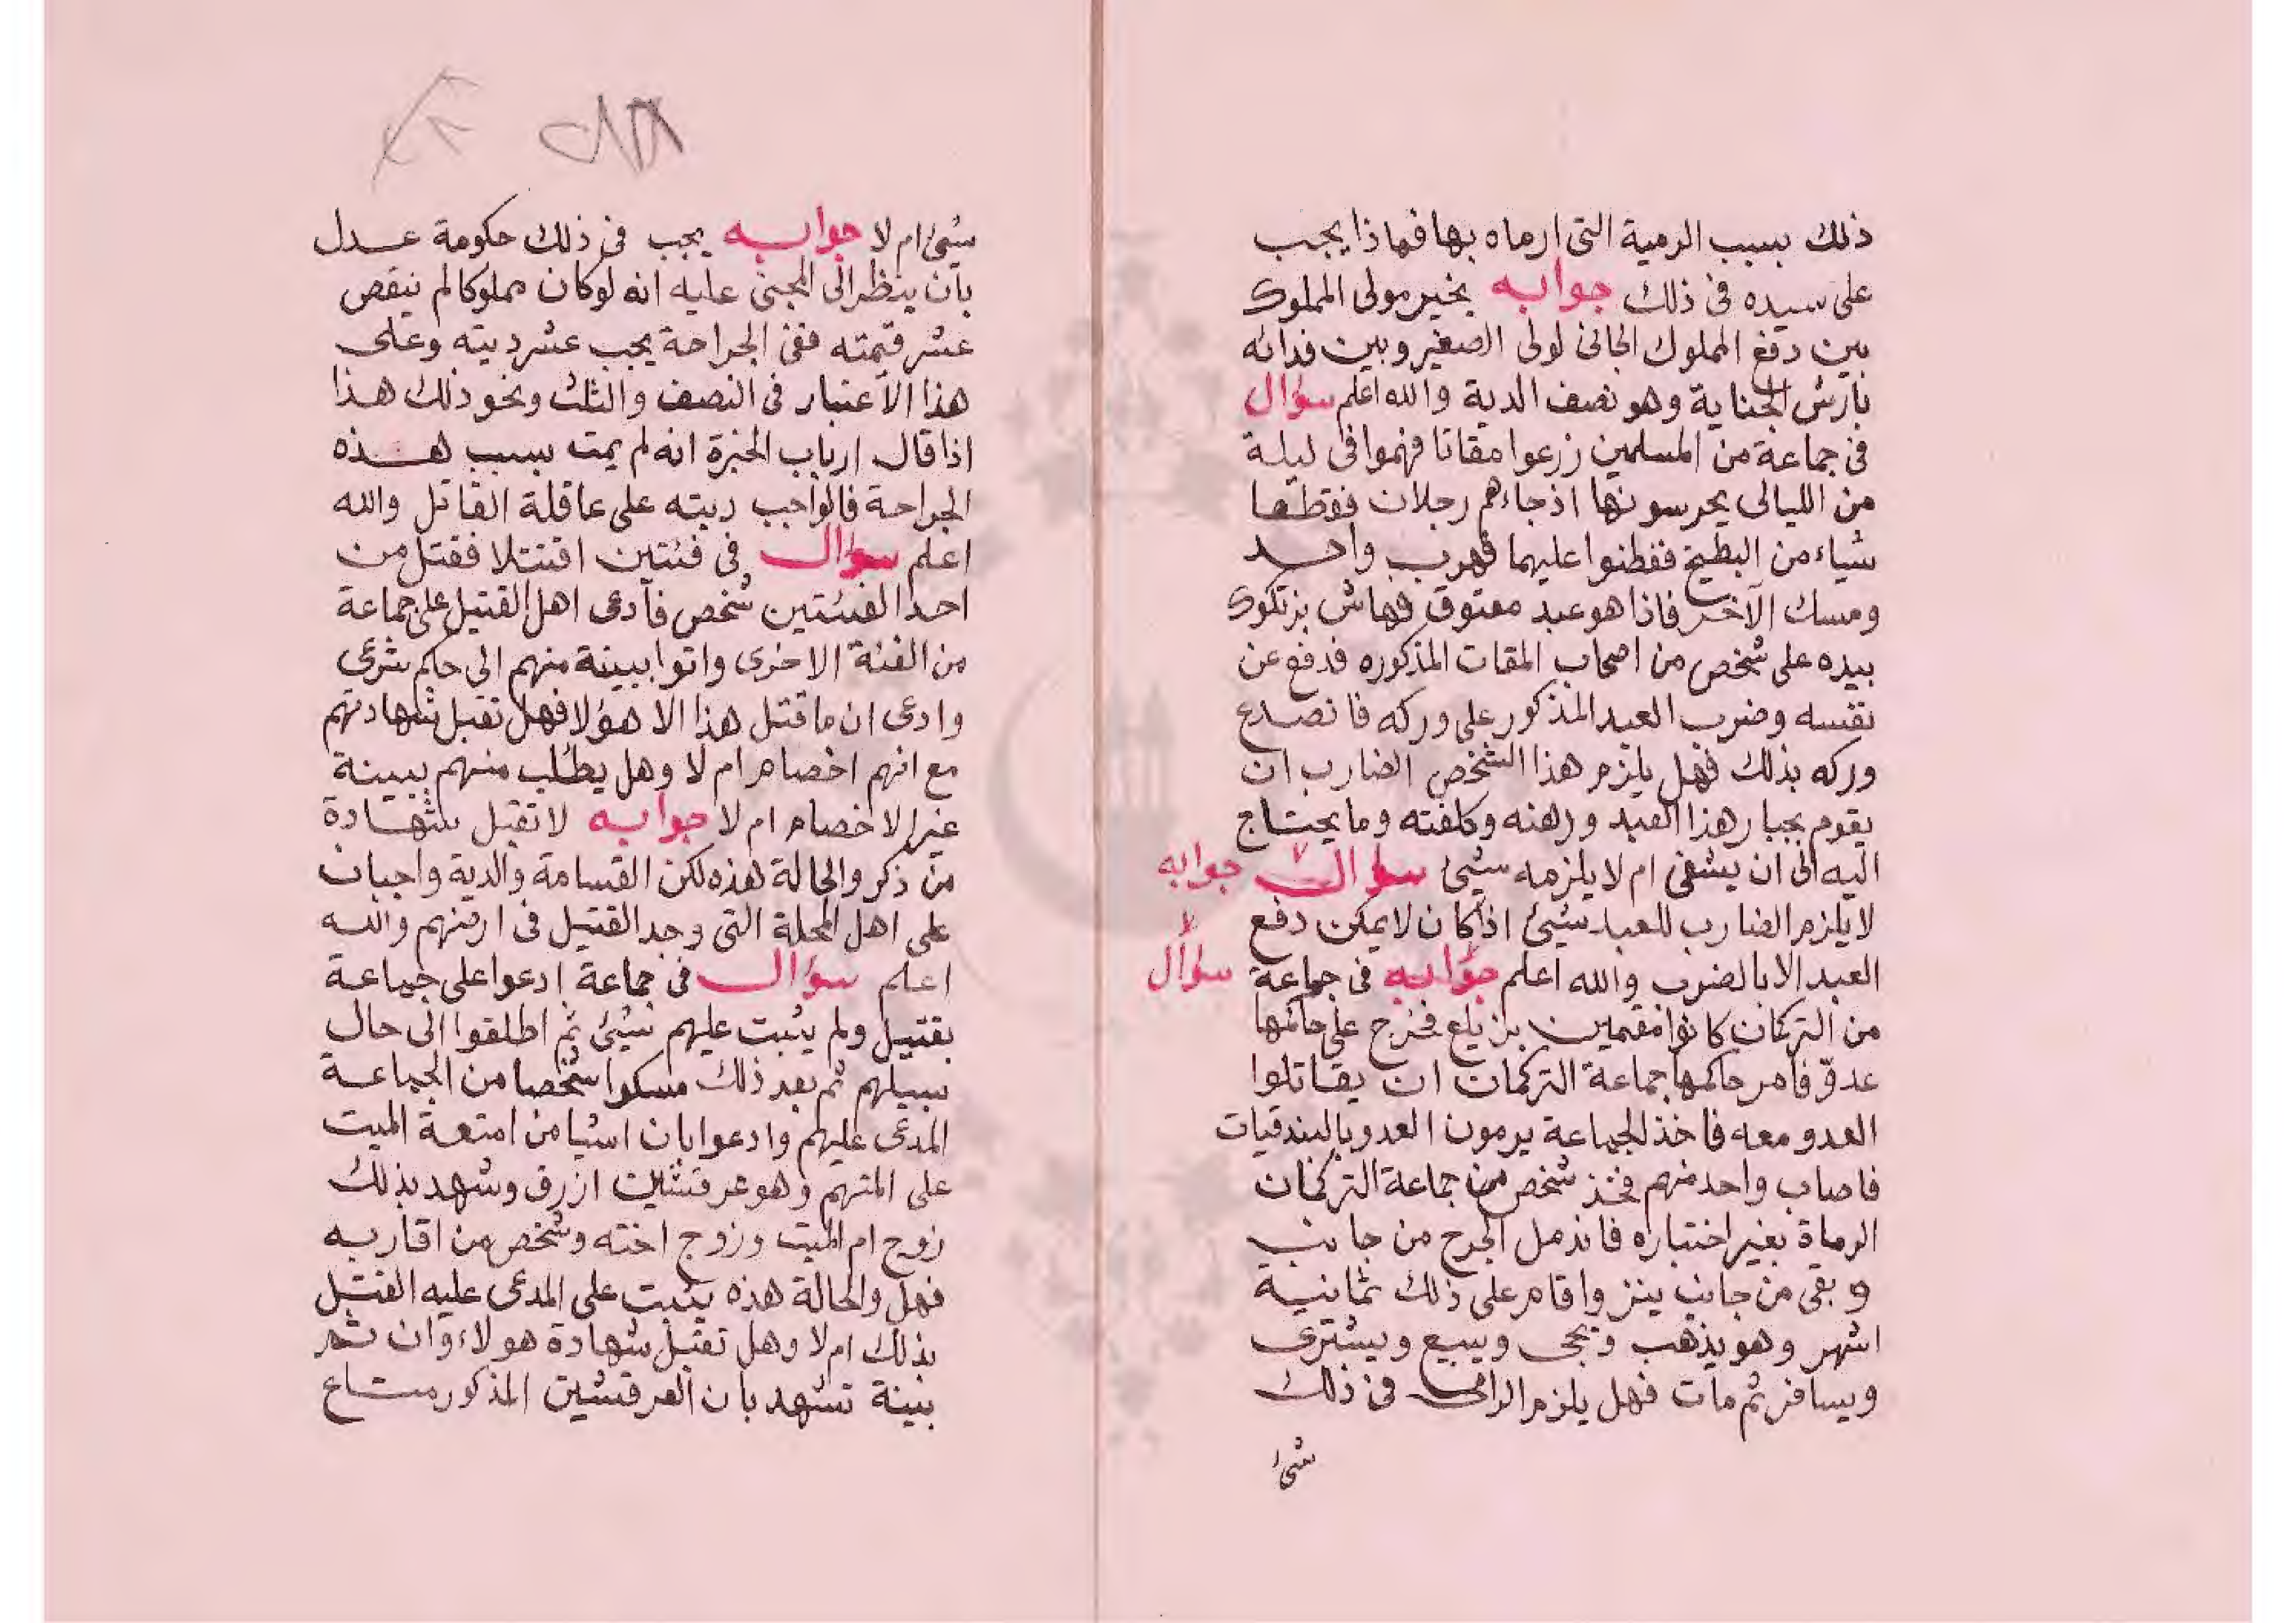 ذلك بسبب الرمية التى ارماه بها فماذا يجب
على سيده فى ذلك جوابه يخير مولى المملوك
بين دفع المملوك الجانى لولى الصغير وبين فدائه
بارش الجناية وهو نصف الدية والله اعلم سؤال
فى جماعة من المسلمين زرعوا مقاتا فهموا فى ليلة
من الليالى يحرسونها اذ جاءهم رجلان فقطعا
شياء من البطيخ ففطنوا عليهما فهرب واحد
ومسك الآخر فاذا هو عبد معتوق فهاش بزتكوك
بيده على شخص من اصحاب المقات المذكوره فدفع عن
نفسه وضرب العبد المذكور على وركه فانصدع
وركه بذلك فهل يلزم هذا الشخص الضارب ان
يقوم بجبار هذا العبد ورهنه وكلفته وما يحتاج
اليه الى ان يشفى ام لا يلزمه شيئ سؤال جوابه
لا يلزم الضارب للعبد شيئ اذا كان لا يمكن دفع
العبد الا بالضرب والله اعلم جوابه فى جماعة سؤال
من التركمان كانوا مقيمين بزيلع فخرج على حاكمها
عدوّ فامر حاكمها جماعة التركمان ان يقاتلوا
العدو معه فاخذ الجماعة يرمون العدو بالبندقيات
فاصاب واحد منهم فخذ شخص من جماعة التركمان
الرماة بغير اختياره فاندمل الجرح من جانب
وبقى من جانب ينز واقام على ذلك ثمانية
اشهر وهو يذهب ويجى ويبيع ويشترى
ويسافر ثم مات فهل يلزم الرامى فى ذلك
شئ
شيئ ام لا جوابه يجب فى ذلك حكومة عدل
بان ينظر الى المجنى عليه انه لو كان مملوكا لم ينقص
عشر قيمته ففى الجراحة يجب عشر ديته وعلى
هذا الاعتبار فى النصف والثلث ونحو ذلك هذا
اذا قال ارباب الخبرة انه لم يمت بسبب هذه
الجراحة فالواجب ديته على عاقلة القاتل والله
اعلم سؤال فى فئتين اقتتلا فقتل من
احد الفئتين شخص فادعى اهل القتيل على جماعة
من الفئة الاخرى واتوا ببينة منهم الى حاكم شرعى
وادعى ان ما قتل هذا الا هؤلا فهل تقبل شهادتهم
مع انهم اخصام ام لا وهل يطلب منهم ببينة
غير الاخصام ام لا جوابه لا تقبل شهادة
من ذكر والحالة هذه لكن القسامة والدية واجبان
على اهل المحلة التى وجد القتيل فى ارضهم والله
اعلم سؤال فى جماعة ادعوا على جماعة
بقتيل ولم يثبت عليهم شيئ ثم اطلقوا الى حال
سبيلهم ثم بعد ذلك مسكوا شخصا من الجماعة
المدعى عليهم وادعوا بان اشيا من امتعة الميت
على المتهم وهو عرقشين ازرق وشهد بذلك
زوج ام الميت وزوج اخته وشخص من اقاربه
فهل والحالة هذه يثبت على المدعى عليه القتل
بذلك ام لا وهل تقبل شهادة هولاء وان ثم
بينة تشهد بان العرقشين المذكور متاع